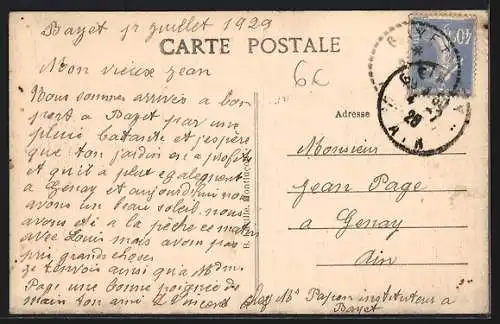 Bayet 1r juillet 1929
CARTE POSTALE
Mon vieux jean
6c
Nous sommes arrivés a bon
port a Bayet par une
pluie batante et j'espère
que ton jardin en a profité
et qu'il a plut egalement
a Genay et aujourd'hui nous
avons un beau soleil nous
avons été a la pèche ce matin
avec Louis mais avons pas
pri grands choses
je t'envois ainsi qu'a Mdm
Page une bonne poignée de
main ton ami
Adresse
Monsieur
jean Page
a Genay
Ain
Mr Papon instituteur a
Bayet